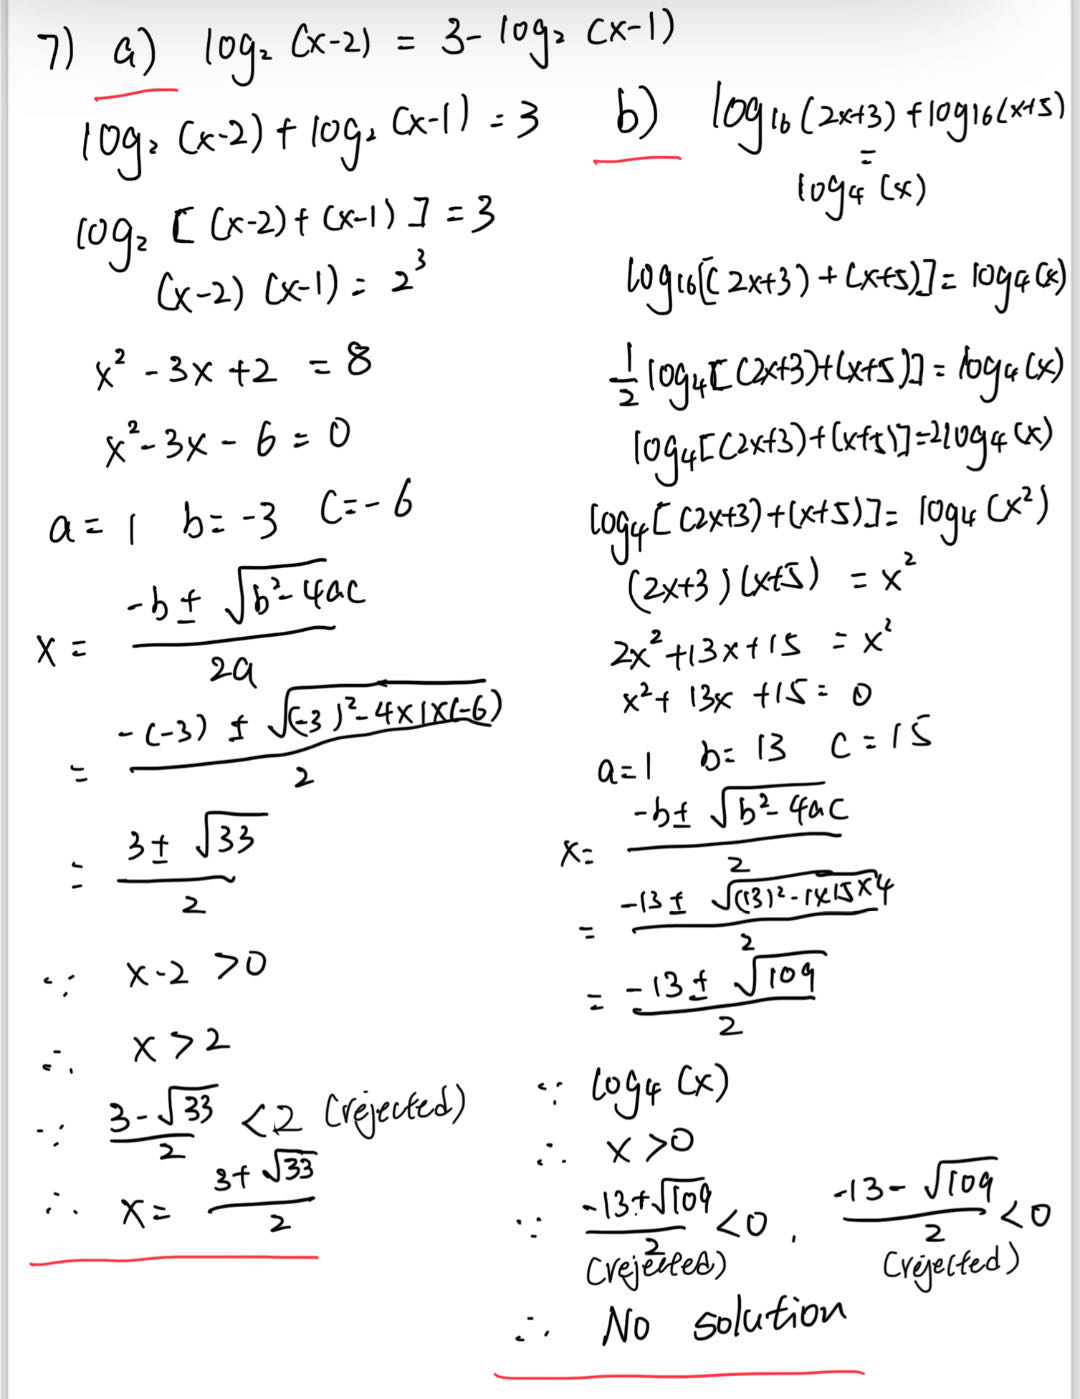 7) a) log₂ (x-2) = 3- log₂ (x-1)
log₂ (x-2) + log₂ (x-1) = 3
log₂ [ (x-2) + (x-1) ] = 3
(x-2) (x-1) = 2³
x² - 3x + 2 = 8
x² - 3x - 6 = 0
a = 1 b = -3 C = - 6
x = (-b ± √(b² - 4ac)) / 2a
= (-(-3) ± √((-3)² - 4×1×(-6))) / 2
= (3 ± √33) / 2
∵ x-2 >0
∴ x > 2
∵ (3-√33)/2 < 2 (rejected)
∴ x = (3+√33)/2
b) log₁₆ (2x+3) + log₁₆ (x+5)
=
log₄ (x)
log₁₆[(2x+3) + (x+5)] = log₄ (x)
1/2 log₄[(2x+3)+(x+5)] = log₄ (x)
log₄[(2x+3)+(x+5)] = 2log₄ (x)
log₄[(2x+3)+(x+5)] = log₄ (x²)
(2x+3)(x+5) = x²
2x² +13x+15 = x²
x² + 13x +15 = 0
a=1 b= 13 C = 15
x= (-b± √(b² - 4ac)) / 2
= (-13 ± √((13)² - 1×15×4)) / 2
= (-13 ± √109) / 2
∵ log₄ (x)
∴ x >0
∵ (-13+√109)/2 <0 , (-13-√109)/2 <0
(rejected) (rejected)
∴ No solution